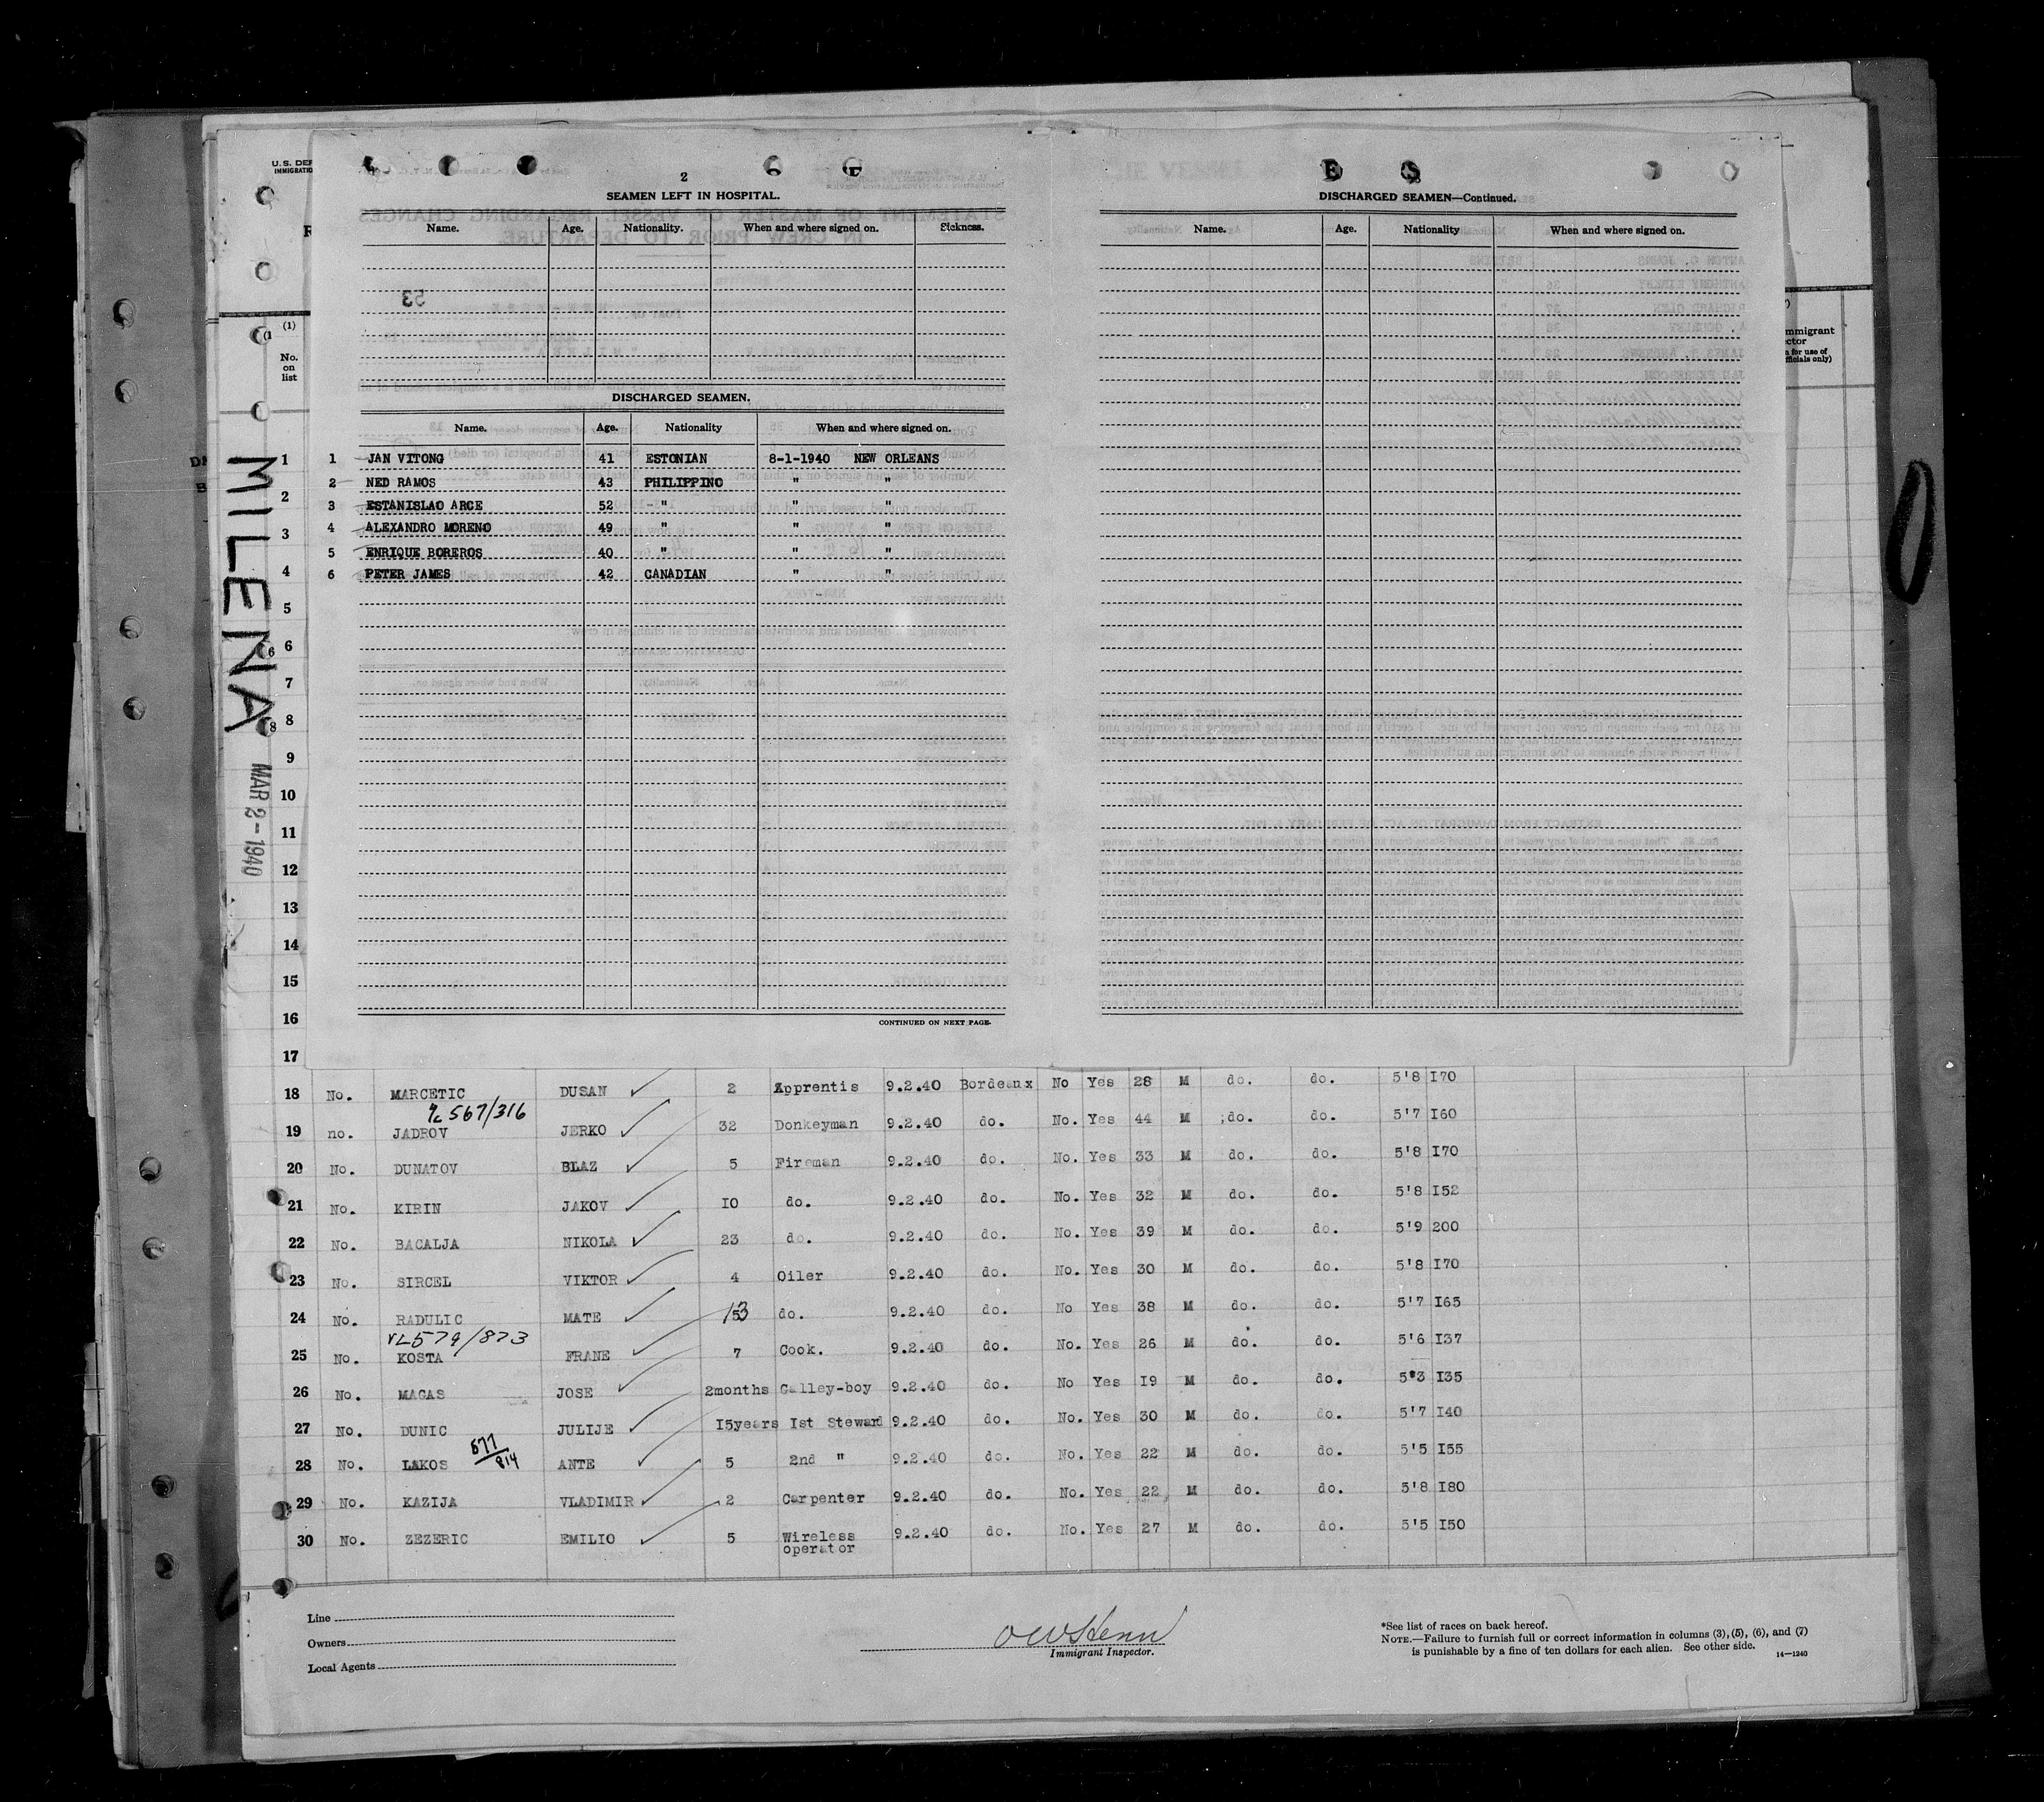 U.S. DEP
IMMIGRATIO
2
SEAMEN LEFT IN HOSPITAL.
Name. Age. Nationality. When and where signed on. Sickness.
53
DISCHARGED SEAMEN.
Name. Age. Nationality When and where signed on.
1 JAN VITONG 41 ESTONIAN 8-1-1940 NEW ORLEANS
2 NED RAMOS 43 PHILIPPINO " "
3 ESTANISLAO ARCE 52 " " "
4 ALEXANDRO MORENO 49 " " "
5 ENRIQUE BOREROS 40 " " "
6 PETER JAMES 42 CANADIAN " "
CONTINUED ON NEXT PAGE.
E S
DISCHARGED SEAMEN—Continued.
Name. Age. Nationality When and where signed on.
mmigrant
ctor
n for use of
fficials only)
MILENA
MAR 2-1940
(1)
No.
on
list
1
2
3
4
5
6
7
8
9
10
11
12
13
14
15
16
17
18 No. MARCETIC DUSAN ✓ 2 Apprentis 9.2.40 Bordeaux No Yes 28 M do. do. 5'8 I70
567/316
19 no. JADROV JERKO ✓ 32 Donkeyman 9.2.40 do. No. Yes 44 M ;do. do. 5'7 I60
20 No. DUNATOV BLAZ ✓ 5 Fireman 9.2.40 do. No. Yes 33 M do. do. 5'8 I70
21 No. KIRIN JAKOV ✓ IO do. 9.2.40 do. No. Yes 32 M do. do. 5'8 I52
22 No. BACALJA NIKOLA ✓ 23 do. 9.2.40 do. No. Yes 39 M do. do. 5'9 200
23 No. SIRCEL VIKTOR ✓ 4 Oiler 9.2.40 do. No. Yes 30 M do. do. 5'8 I70
24 No. RADULIC MATE ✓ 13 do. 9.2.40 do. No Yes 38 M do. do. 5'7 I65
579/873
25 No. KOSTA FRANE ✓ 7 Cook. 9.2.40 do. No. Yes 26 M do. do. 5'6 I37
26 No. MAGAS JOSE ✓ 2months Galley-boy 9.2.40 do. No Yes I9 M do. do. 5'3 I35
27 No. DUNIC JULIJE ✓ I5years Ist Steward 9.2.40 do. No. Yes 30 M do. do. 5'7 I40
28 No. LAKOS 577/814 ANTE ✓ 5 2nd " 9.2.40 do. No. Yes 22 M do. do. 5'5 I55
29 No. KAZIJA VLADIMIR ✓ 2 Carpenter 9.2.40 do. No. Yes 22 M do. do. 5'8 I80
30 No. ZEZERIC EMILIO ✓ 5 Wireless operator 9.2.40 do. No. Yes 27 M do. do. 5'5 I50
Line
Owners
Local Agents
Immigrant Inspector.
*See list of races on back hereof.
NOTE.—Failure to furnish full or correct information in columns (3), (5), (6), and (7)
is punishable by a fine of ten dollars for each alien. See other side.
14—1240